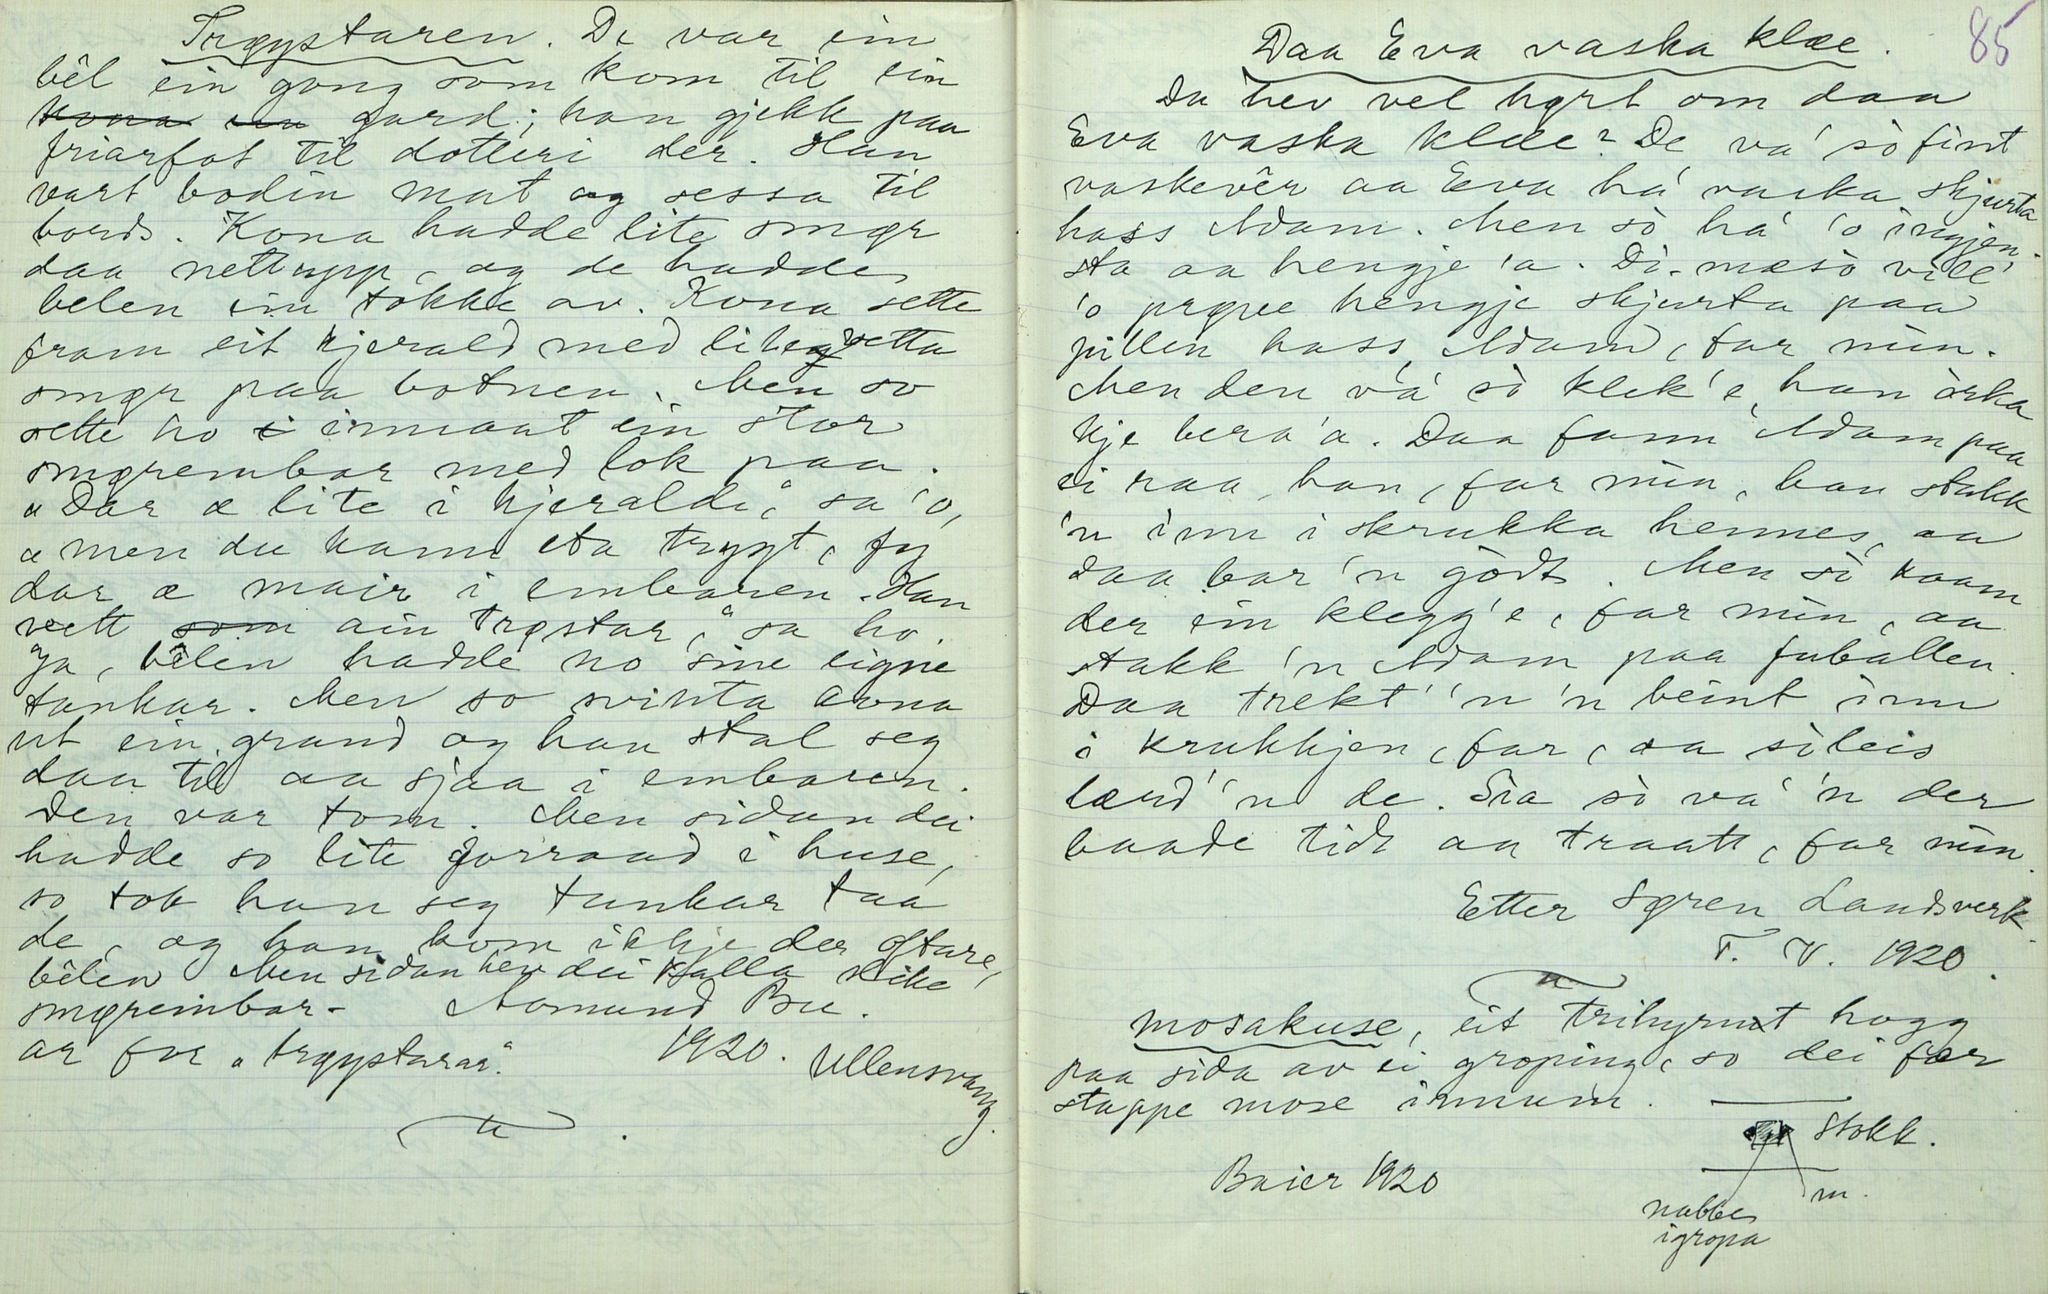 Trøystaren. De var ein
bêl ein gong som kom til ein
kona ein gard; han gjekk paa
friarfot til dotteri der. Han
vart bodin mat og sessa til
bords. Kona hadde lite smør
daa nettupp, og de hadde
belen ein tokke av. Kona sette
fram eit kjerald med liteg vetta
smør paa botnen. Men so
sette ho i innaat ein stor
smørembar med lok paa.
"Dar æ lite i kjeralde," sa 'o,
"men du kann eta trygt, fy
dar æ mair i embaren. Han
vett som ain trøstar," sa ho.
Ja, bêlen hadde no sine eigne
tankar. Men so svinta kona
ut ein grand og han stal seg
daa til aa sjaa i embaren.
Den var tom. Men sidan dei
hadde so lite forraad i huse,
so tok han seg tankar taa
de, og han kom ikkje der oftare,
bêlen Men sidan hev dei kalla slike
smøreimbar-
ar for "trøystarar".
Aamund Bu.
1920. Ullensvang.
85
Daa Eva vaska klæe.
Du hev vel høyrt om daa
Eva vaska klæe? De va' sò fint
vaskevêr aa Eva há vaska skjurta
hass Adam. Men sò há 'o ingjen
sta aa hengje 'a. Di-mæsò vill'
'o prøve hengje skjurta paa
pillen hass Adam, far min.
Men den vá sò klek'e, han òrka
kje bera 'a. Daa fann Adam paa
ei raa, han, far min, han stakk
'n inn i skrukka hennes, aa
daa bar 'n gòdt. Men sò kaam
der ein klegg'e, far min, aa
stakk 'n Adam paa fuballen.
Daa trekt' 'n 'n beint inn
i krukkjen, far, aa sòleis
lærd' 'n de. Sia sò vá 'n der
baade tidt aa traatt, far min.
Etter Søren Landsverk.
T. V. 1920.
mosakuse, eit trihyrnt hogg
paa sida av ei groping, so dei fær
stappe mose innum.
stokk.
m.
nabbe
i gropa
Bøier 1920